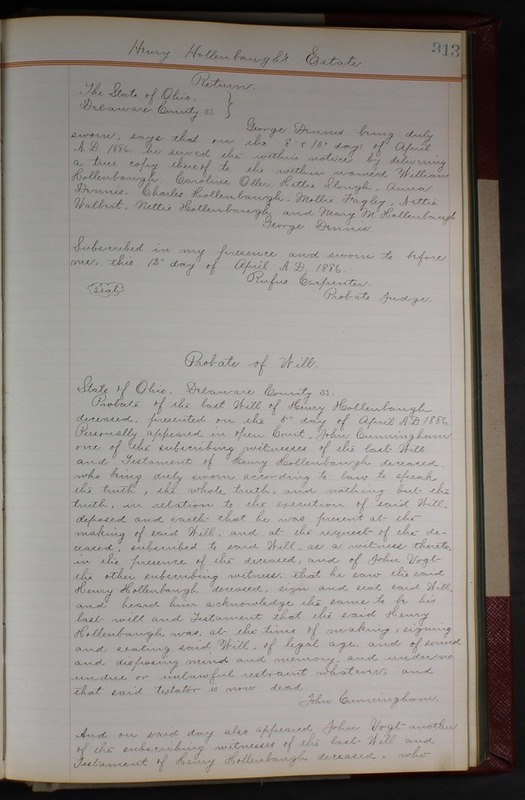 313
Henry Hollenbaugh's Estate
Return.
The State of Ohio, }
Delaware County ss }
George Dennis being duly
sworn, says that on the 8" & 10" days of April
A.D. 1886, he served the within notices by delivering
a true copy thereof to the within named William
Hollenbaugh, Caroline Oller, Kittie Slough, Anna
Dennis, Charles Hollenbaugh, Mollie Fagley, Nettie
Walbert, Nettie Hollenbaugh, and Mary M. Hollenbaugh
George Dennis.
Subscribed in my presence and sworn to before
me, this 12" day of April A.D. 1886.
(Seal) Rufus Carpenter
Probate Judge.
Probate of Will.
State of Ohio. Delaware County ss.
Probate of the last Will of Henry Hollenbaugh
deceased, presented on the day of April A.D. 1886.
Personally appeared in open Court, John Cunningham
one of the subscribing witnesses of the last Will
and Testament of Henry Hollenbaugh deceased,
who being duly sworn according to law to speak
the truth, the whole truth, and nothing but the
truth, in relation to the execution of said Will,
deposed and saith that he was present at the
making of said Will, and at the request of the de-
ceased, subscribed to said Will, as a witness thereto,
in the presence of the deceased, and of John Vogt
the other subscribing witness; that he saw the said
Henry Hollenbaugh deceased, sign and seal said Will,
and heard him acknowledge the same to be his
last will and Testament that the said Henry
Hollenbaugh was, at the time of making, signing
and sealing said Will, of legal age, and of sound
and disposing mind and memory, and under no
undue or unlawful restraint whatever, and
that said testator is now dead
John Cunningham.
And on said day also appeared John Vogt another
of the subscribing witnesses of the last Will and
Testament of Henry Hollenbaugh deceased, who